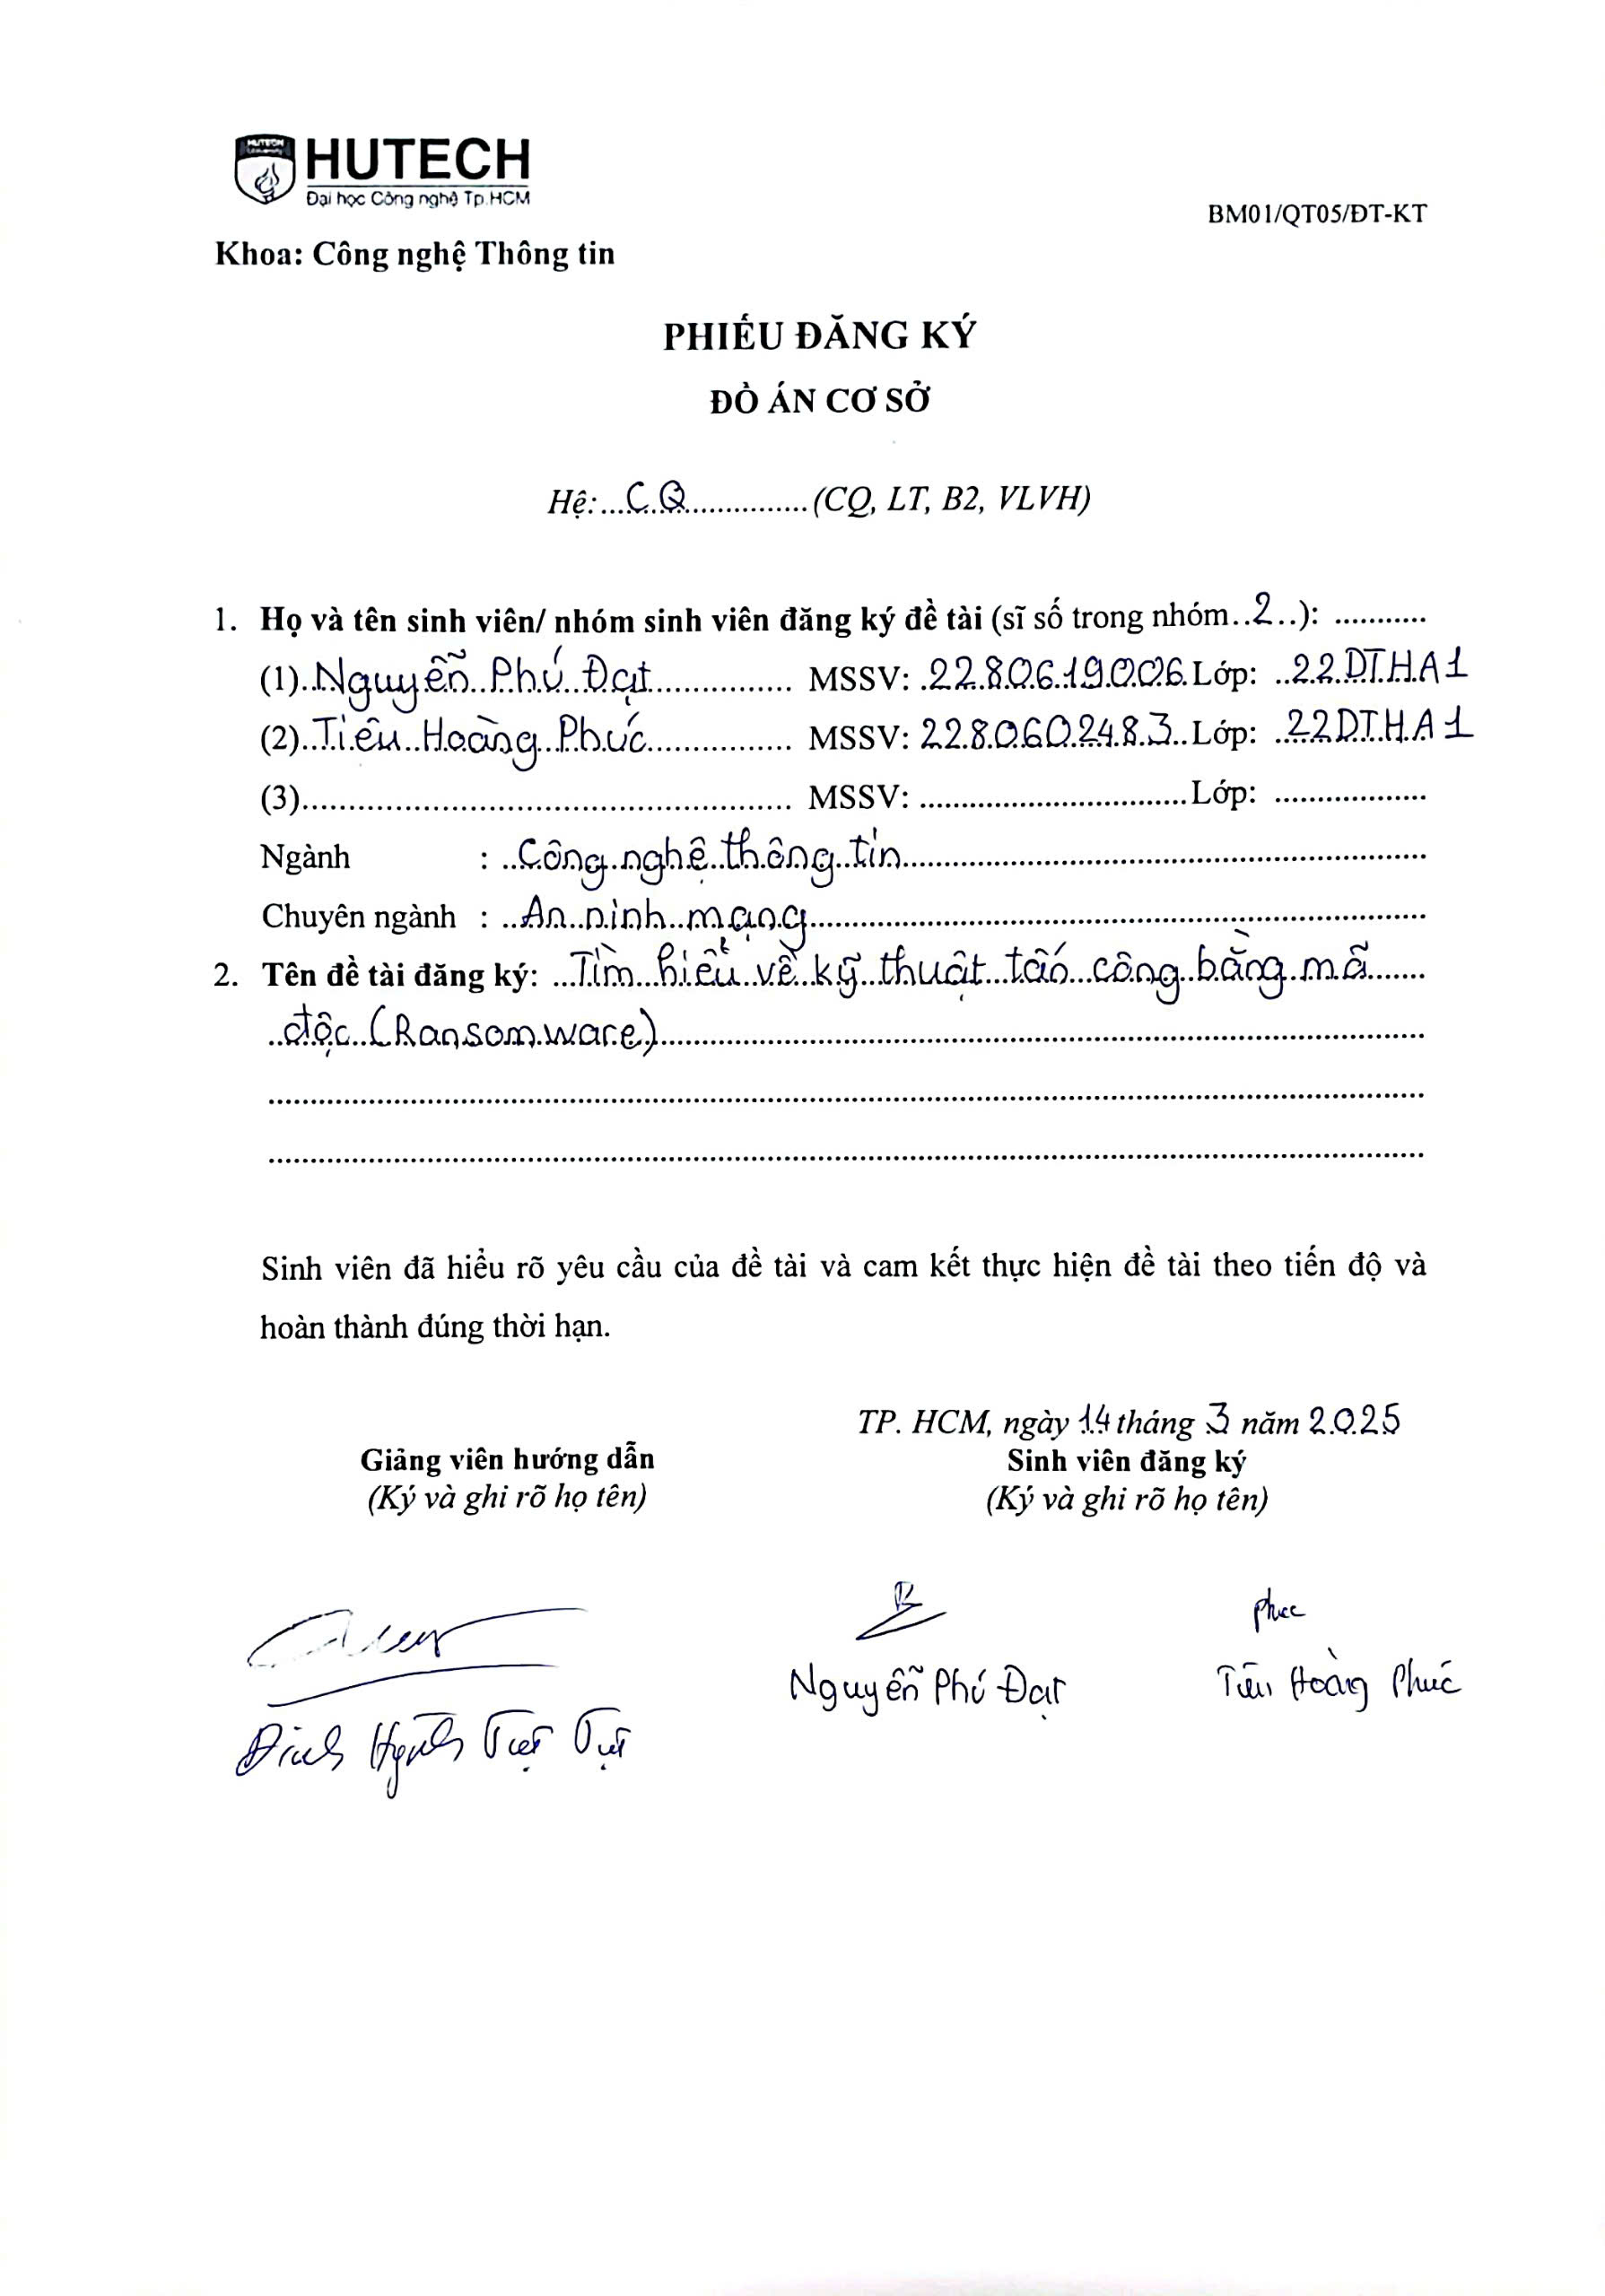 HUTECH
HUTECH
Đại học Công nghệ Tp.HCM
BM01/QT05/ĐT-KT
Khoa: Công nghệ Thông tin
PHIẾU ĐĂNG KÝ
ĐỒ ÁN CƠ SỞ
Hệ: CQ (CQ, LT, B2, VLVH)
1. Họ và tên sinh viên/ nhóm sinh viên đăng ký đề tài (sĩ số trong nhóm 2 ):
(1) Nguyễn Phú Đạt MSSV: 2280619006 Lớp: 22DTHA1
(2) Tiêu Hoàng Phúc MSSV: 2280602483 Lớp: 22DTHA1
(3) MSSV: Lớp:
Ngành : Công nghệ thông tin
Chuyên ngành : An ninh mạng
2. Tên đề tài đăng ký: Tìm hiểu về kỹ thuật tấn công bằng mã
độc (Ransomware)
Sinh viên đã hiểu rõ yêu cầu của đề tài và cam kết thực hiện đề tài theo tiến độ và
hoàn thành đúng thời hạn.
TP. HCM, ngày 14 tháng 3 năm 2025
Giảng viên hướng dẫn Sinh viên đăng ký
(Ký và ghi rõ họ tên) (Ký và ghi rõ họ tên)
Phúc
Nguyễn Phú Đạt Tiêu Hoàng Phúc
Đinh Huỳnh